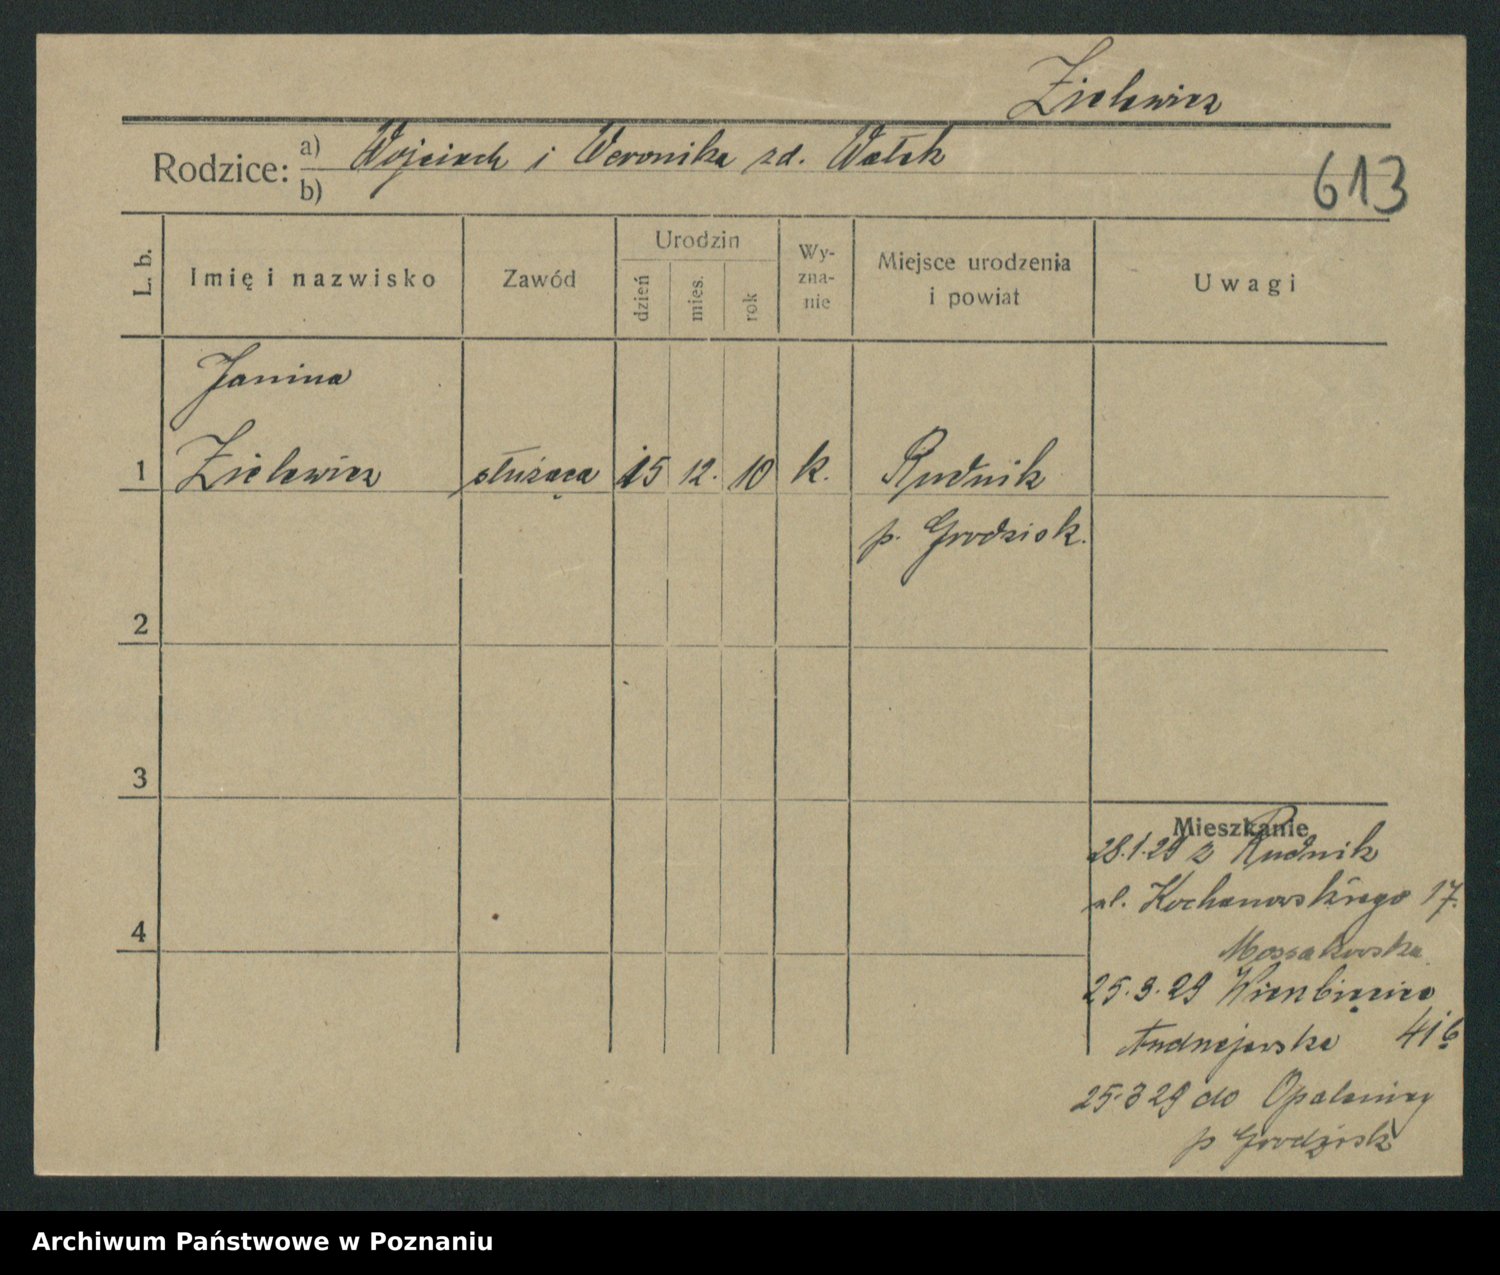 Zielewicz
Rodzice: a) Wojciech i Weronika zd. Wałek
b)
613
L. b.
Imię i nazwisko
Zawód
Urodzin
dzień
mies.
rok
Wy-
zna-
nie
Miejsce urodzenia
i powiat
Uwagi
Janina
1 Zielewicz służąca 15 12. 10 k. Rudnik
p. Grodzisk.
2
3
Mieszkanie
28.1.29 z Rudnik
ul. Kochanowskiego 17.
Mossakowska
4
25.3.29 Wierzbięcice
Andrzejewska 41 b
25.3 29 do Opalenicy
p Grodzisk
Archiwum Państwowe w Poznaniu